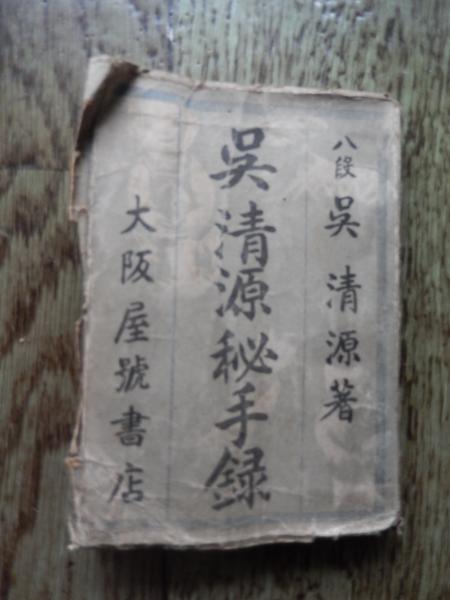 八段 吳清源著
吳清源秘手録
大阪屋號書店